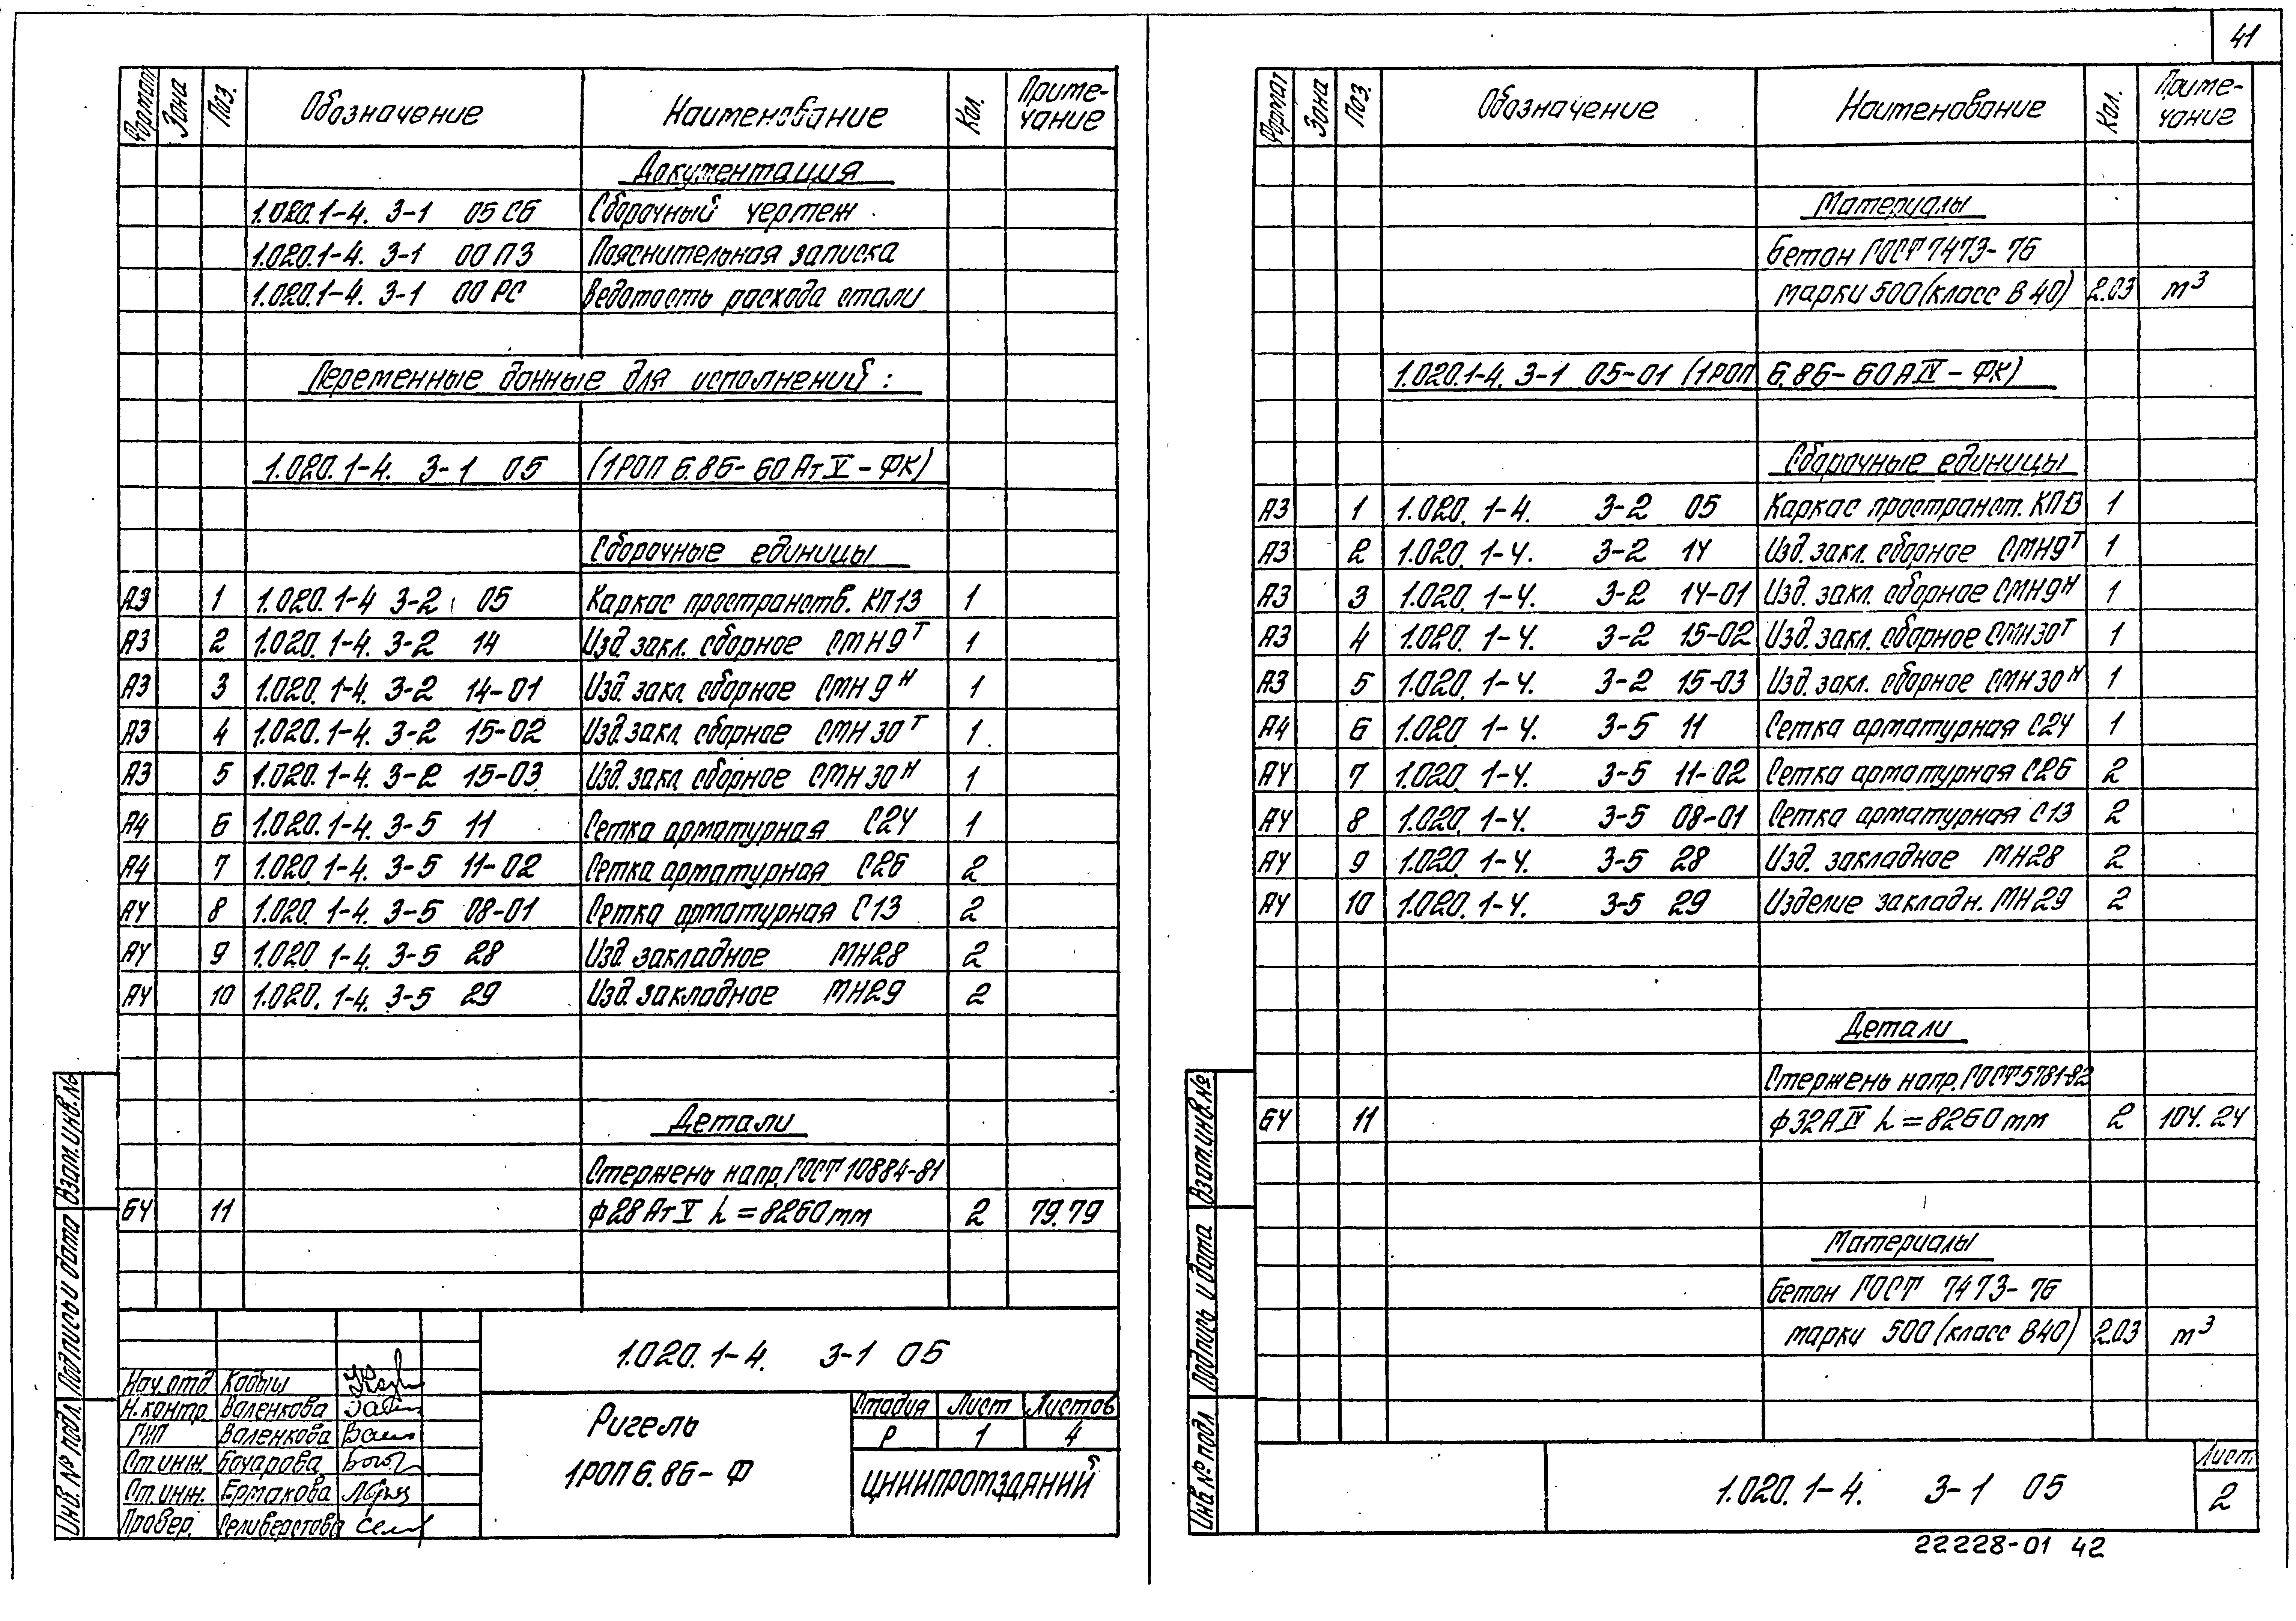 41
Формат Зона Поз. Обозначение Наименование Кол. Приме-
чание
Документация
1.020.1-4. 3-1 05 СБ Сборочный чертеж
1.020.1-4. 3-1 00 ПЗ Пояснительная записка
1.020.1-4. 3-1 00 РС Ведомость расхода стали
Переменные данные для исполнений:
1.020.1-4. 3-1 05 (1РОП 6.86-60 АтV-ФК)
Сборочные единицы
А3 1 1.020.1-4 3-2 05 Каркас пространств. КП13 1
А3 2 1.020.1-4. 3-2 14 Изд. закл. сборное СМН9Т 1
А3 3 1.020.1-4. 3-2 14-01 Изд. закл. сборное СМН9Н 1
А3 4 1.020.1-4. 3-2 15-02 Изд. закл. сборное СМН30Т 1
А3 5 1.020.1-4. 3-2 15-03 Изд. закл. сборное СМН30Н 1
А4 6 1.020.1-4. 3-5 11 Сетка арматурная С24 1
А4 7 1.020.1-4. 3-5 11-02 Сетка арматурная С26 2
А4 8 1.020.1-4. 3-5 08-01 Сетка арматурная С13 2
А4 9 1.020.1-4. 3-5 28 Изд. закладное МН28 2
А4 10 1.020.1-4. 3-5 29 Изд. закладное МН29 2
Детали
Стержень напр. ГОСТ 10884-81
БЧ 11 ф28 АтV L=8260mm 2 79.79
1.020.1-4. 3-1 05
Нач.отд. Кодыш
Н.контр. Валенкова
ГИП Валенкова
Ст.инж. Бочарова
Ст.инж. Ермакова
Провер. Селиверстова
Ригель
1РОП6.86-Ф
Стадия Лист Листов
Р 1 4
ЦНИИПРОМЗДАНИЙ
Инв. № подл. Подпись и дата Взам.инв.№
Формат Зона Поз. Обозначение Наименование Кол. Приме-
чание
Материалы
Бетон ГОСТ 7473-76
марки 500 (класс В 40) 2.03 m³
1.020.1-4. 3-1 05-01 (1РОП 6.86-60АIV-ФК)
Сборочные единицы
А3 1 1.020.1-4. 3-2 05 Каркас пространст. КП13 1
А3 2 1.020.1-4. 3-2 14 Изд. закл. сборное СМН9Т 1
А3 3 1.020.1-4. 3-2 14-01 Изд. закл. сборное СМН9Н 1
А3 4 1.020.1-4. 3-2 15-02 Изд. закл. сборное СМН30Т 1
А3 5 1.020.1-4. 3-2 15-03 Изд. закл. сборное СМН30Н 1
А4 6 1.020.1-4. 3-5 11 Сетка арматурная С24 1
А4 7 1.020.1-4. 3-5 11-02 Сетка арматурная С26 2
А4 8 1.020.1-4. 3-5 08-01 Сетка арматурная С13 2
А4 9 1.020.1-4. 3-5 28 Изд. закладное МН28 2
А4 10 1.020.1-4. 3-5 29 Изделие закладн. МН29 2
Детали
Стержень напр. ГОСТ5781-82
БЧ 11 ф32АIV L=8260mm 2 104.24
Материалы
Бетон ГОСТ 7473-76
марки 500 (класс В40) 2.03 m³
1.020.1-4. 3-1 05
Лист
2
Инв № подл Подпись и дата Взам.инв.№
22228-01 42